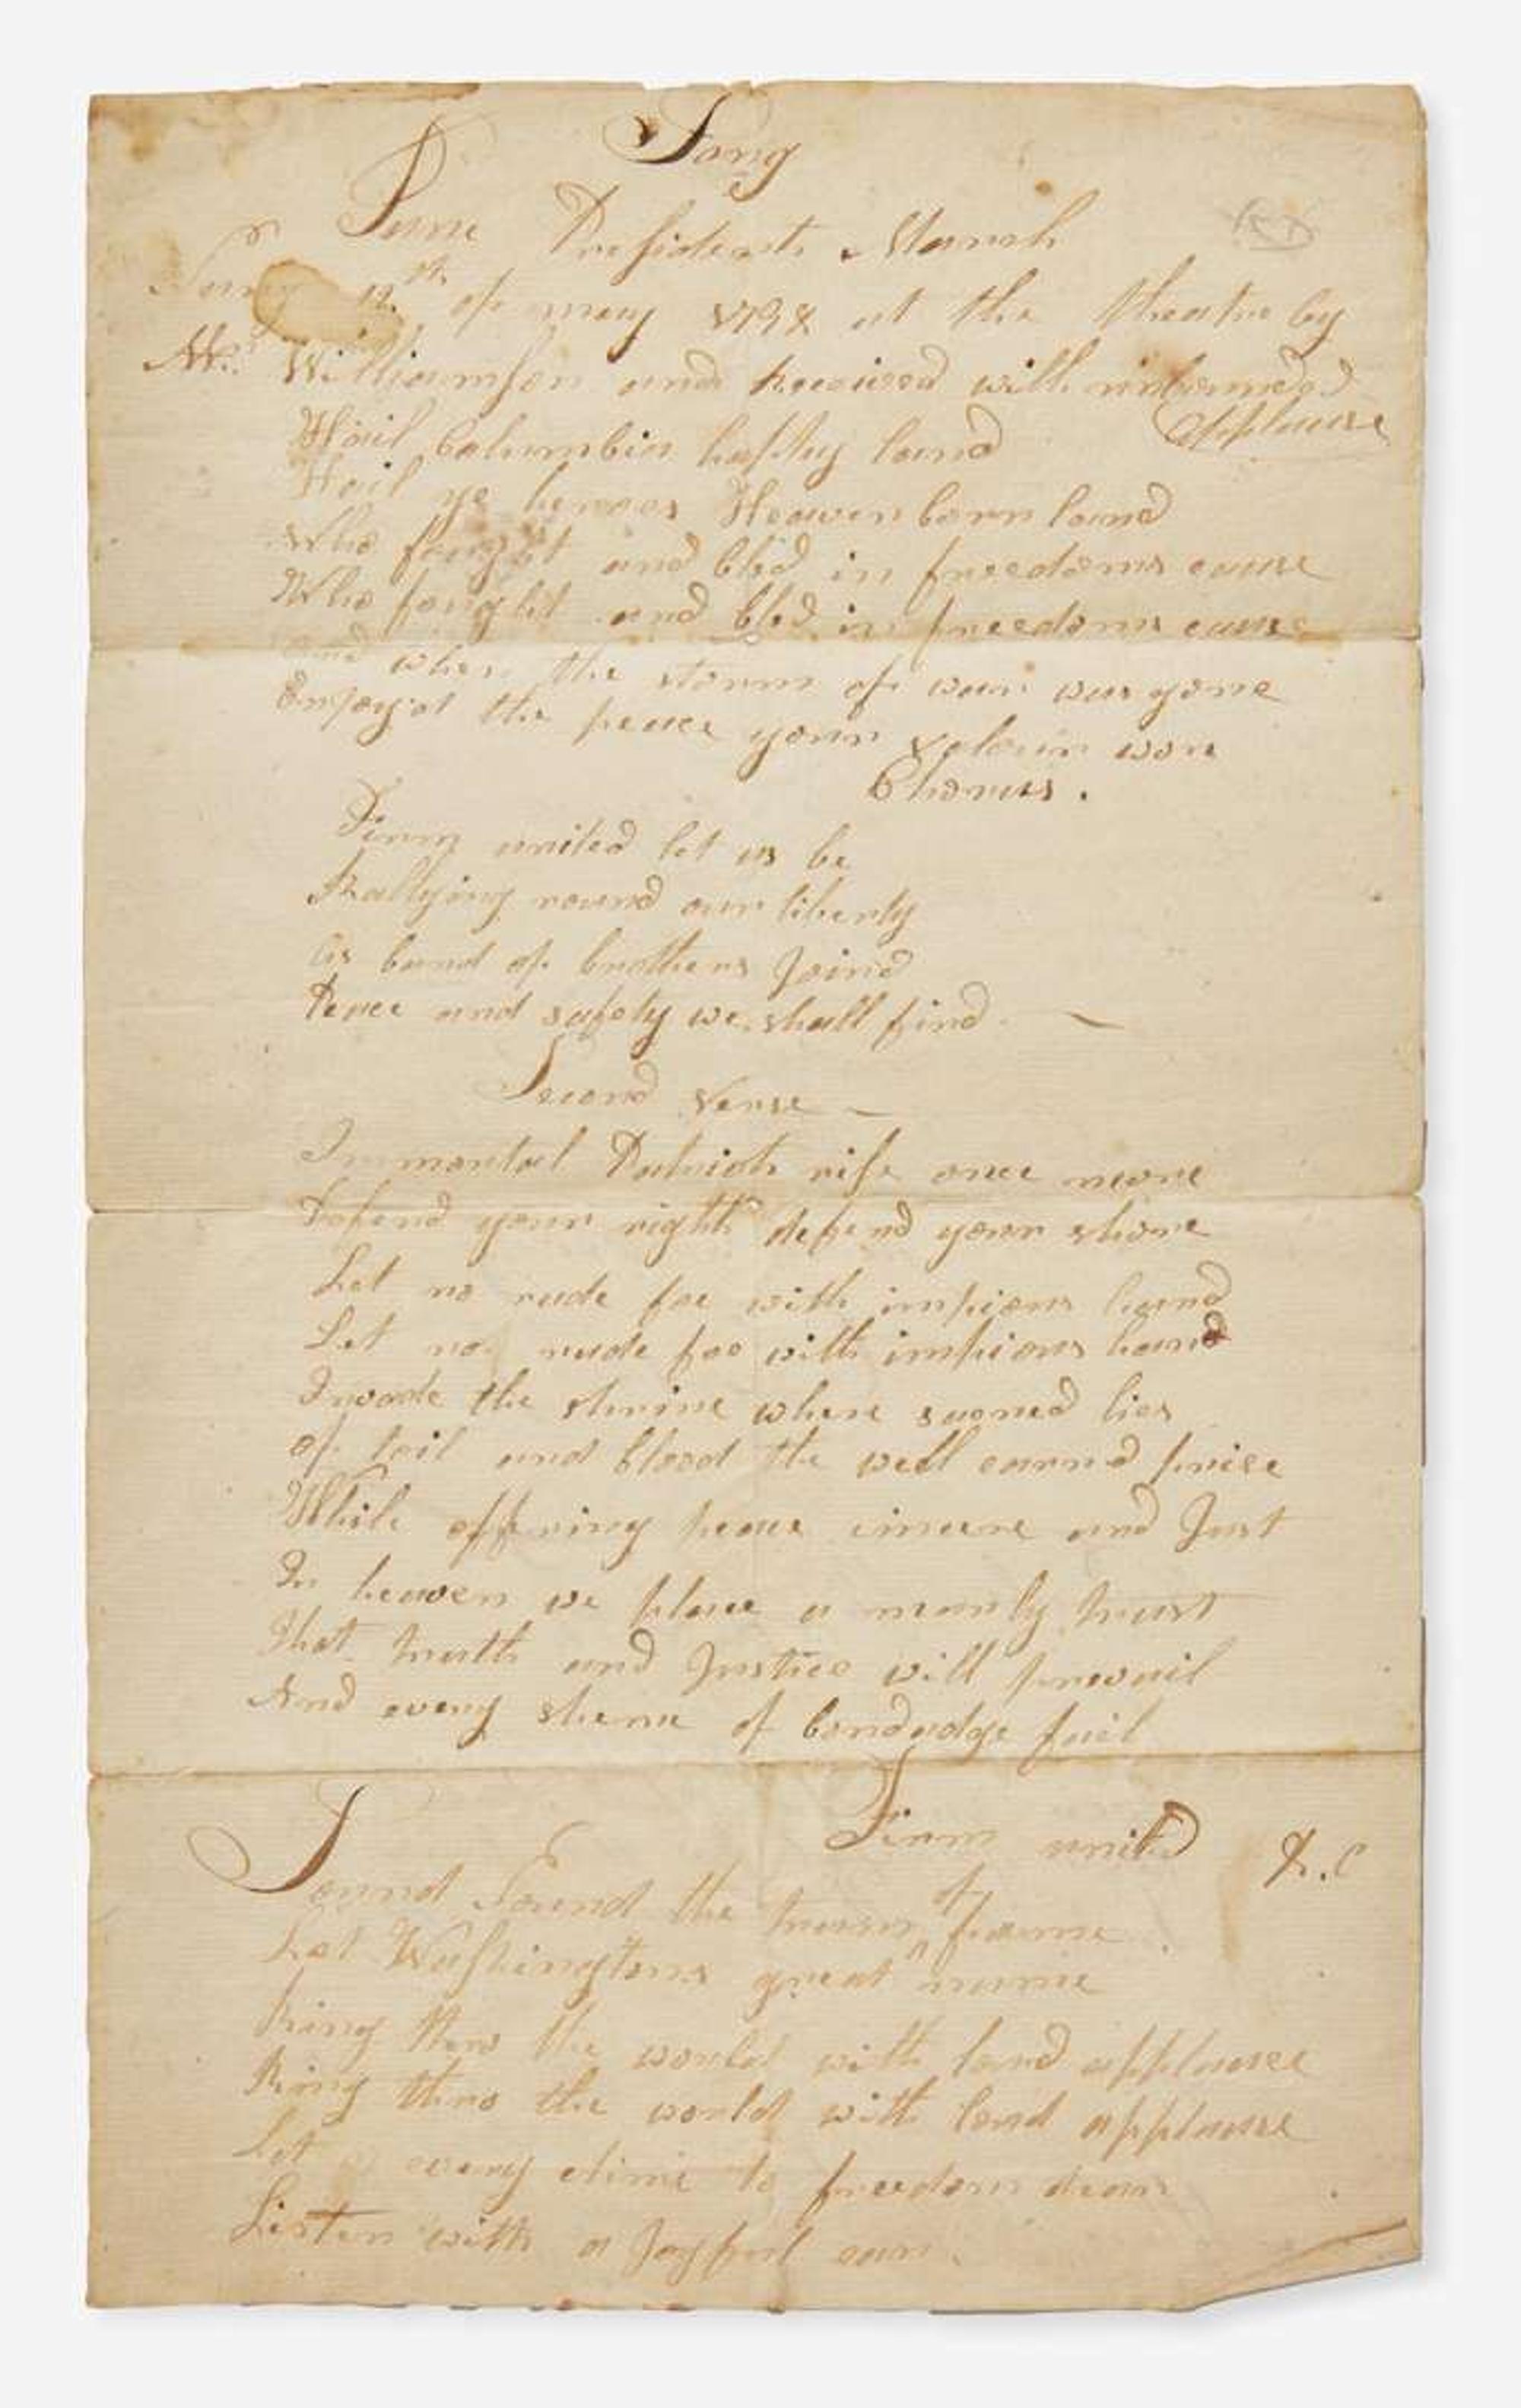 Song
Tune Presidents March
Sung 12th of may 1798 at the theatre by
Mr. Williamson and Received with unbounded
applause
Hail Columbia happy land
Hail ye heroes Heaven born land
Who fought and bled in freedoms cause
Who fought and bled in freedoms cause
and when the storm of war was gone
Enjoy'd the peace your valour won
Chorus.
Firm united let us be
Rallying round our liberty
As band of brothers Joind
Peace and safety we shall find
Second Verse
Immortal Patriots rise once more
Defend your rights defend your shore
Let no rude foe with impious hand
Let no rude foe with impious hand
Invade the shrine where sacred lies
of toil and blood the well earnd prise
While offering peace sincere and Just
In heaven we place a manly trust
That truth and Justice will prevail
And every sheme of bondadge fail
Firm united &.c
Sound Sound the trump of fame
Let Washingtons great name
Ring thro the world with loud applause
Ring thro the world with loud applause
Let every clime to freedom dear
Listen with a Joyful ear.